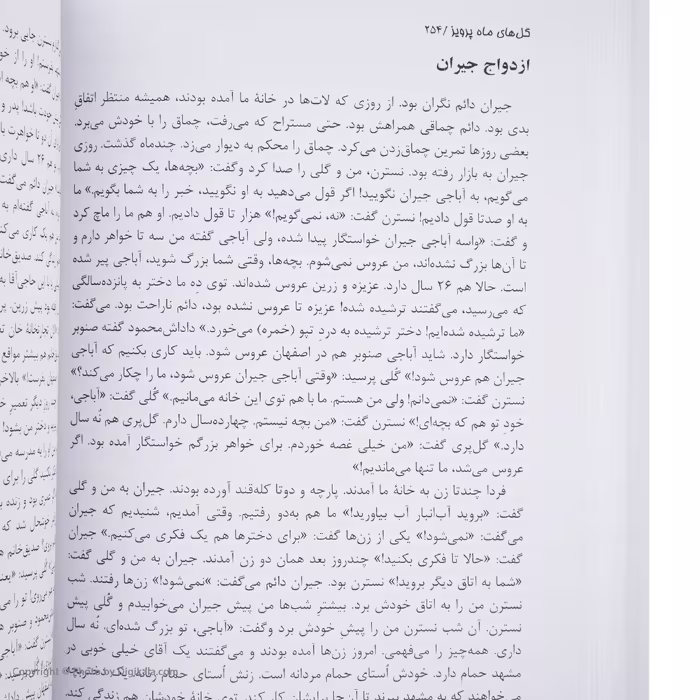 گل‌های ماه پرویز /۲۵۴
ازدواج جیران
جیران دائم نگران بود. از روزی که لات‌ها در خانهٔ ما آمده بودند، همیشه منتظر اتفاقِ
بدی بود. دائم چماقی همراهش بود. حتی مستراح که می‌رفت، چماق را با خودش می‌برد.
بعضی روزها تمرین چماق‌زدن می‌کرد. چماق را محکم به دیوار می‌زد. چندماه گذشت. روزی
جیران به بازار رفته بود. نسترن، من و گلی را صدا کرد وگفت: «بچه‌ها، یک چیزی به شما
می‌گویم، به آباجی جیران نگویید! اگر قول می‌دهید به او نگویید، خبر را به شما بگویم.» ما
به او صدتا قول دادیم! نسترن گفت: «نه، نمی‌گویم!» هزار تا قول دادیم. او هم ما را ماچ کرد
و گفت: «واسه آباجی جیران خواستگار پیدا شده، ولی آباجی گفته من سه تا خواهر دارم و
تا آن‌ها بزرگ نشده‌اند، من عروس نمی‌شوم. بچه‌ها، وقتی شما بزرگ شوید، آباجی پیر شده
است. حالا هم ۲۶ سال دارد. عزیزه و زرین عروس شده‌اند. توی دِه ما دختر به پانزده‌سالگی
که می‌رسید، می‌گفتند ترشیده شده! عزیزه تا عروس نشده بود، دائم ناراحت بود. می‌گفت:
«ما ترشیده شده‌ایم! دختر ترشیده به درد تپو (خمره) می‌خورد.» داداش‌محمود گفته صنوبر
خواستگار دارد. شاید آباجی صنوبر هم در اصفهان عروس شود. باید کاری بکنیم که آباجی
جیران هم عروس شود!» گُلی پرسید: «وقتی آباجی جیران عروس شود، ما را چکار می‌کند؟»
نسترن گفت: «نمی‌دانم! ولی من هستم. ما با هم توی این خانه می‌مانیم.» گُلی گفت: «آباجی،
خود تو هم که بچه‌ای!» نسترن گفت: «من بچه نیستم. چهارده‌سال دارم. گل‌پری هم نُه سال
دارد.» گل‌پری گفت: «من خیلی غصه خوردم. برای خواهر بزرگم خواستگار آمده بود. اگر
عروس می‌شد، ما تنها می‌ماندیم!»
فردا چندتا زن به خانهٔ ما آمدند. پارچه و دوتا کله‌قند آورده بودند. جیران به من و گلی
گفت: «بروید آب‌انبار آب بیاورید!» ما هم به‌دو رفتیم. وقتی آمدیم، شنیدیم که جیران
می‌گفت: «نمی‌شود!» یکی از زن‌ها گفت: «برای دخترها هم یک فکری می‌کنیم.» جیران
گفت: «حالا تا فکری بکنید!» چندروز بعد همان دو زن آمدند. جیران به من و گلی گفت:
«شما به اتاق دیگر بروید!» نسترن بود. جیران دائم می‌گفت: »نمی‌شود!» زن‌ها رفتند. شب
نسترن من را به اتاق خودش برد. بیشترِ شب‌ها من پیش جیران می‌خوابیدم و گُلی پیش
نسترن. آن شب نسترن من را پیشِ خودش برد وگفت: «آباجی، تو بزرگ شده‌ای، نُه سال
داری. همه‌چیز را می‌فهمی. امروز زن‌ها آمده بودند و می‌گفتند یک آقای خیلی خوبی در
مشهد حمام دارد. خودش اُستای حمام مردانه است. زنش اُستای حمام زنانه. یک دختربچه
می‌خواهند که به مشهد ببرند تا آن‌جا برایشان کار کند. توی خانهٔ خودشان هم زندگی کند.